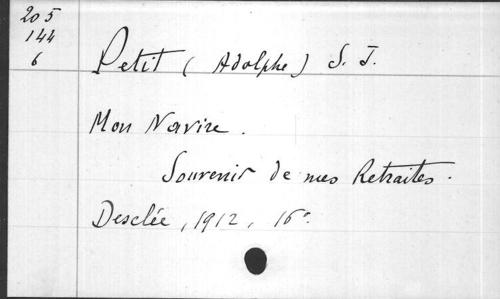 205
144
6
Petit (Adolphe) S. J.
Mon Navire.
Souvenir de mes Retraites.
Desclée, 1912, 16°.